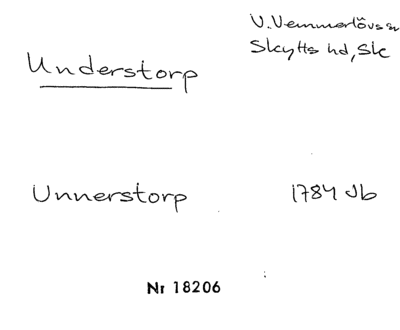 V. Vemmerlövs sn
Skytts hd, Sk
Understorp
Unnerstorp 1784 Jb
Nr 18206